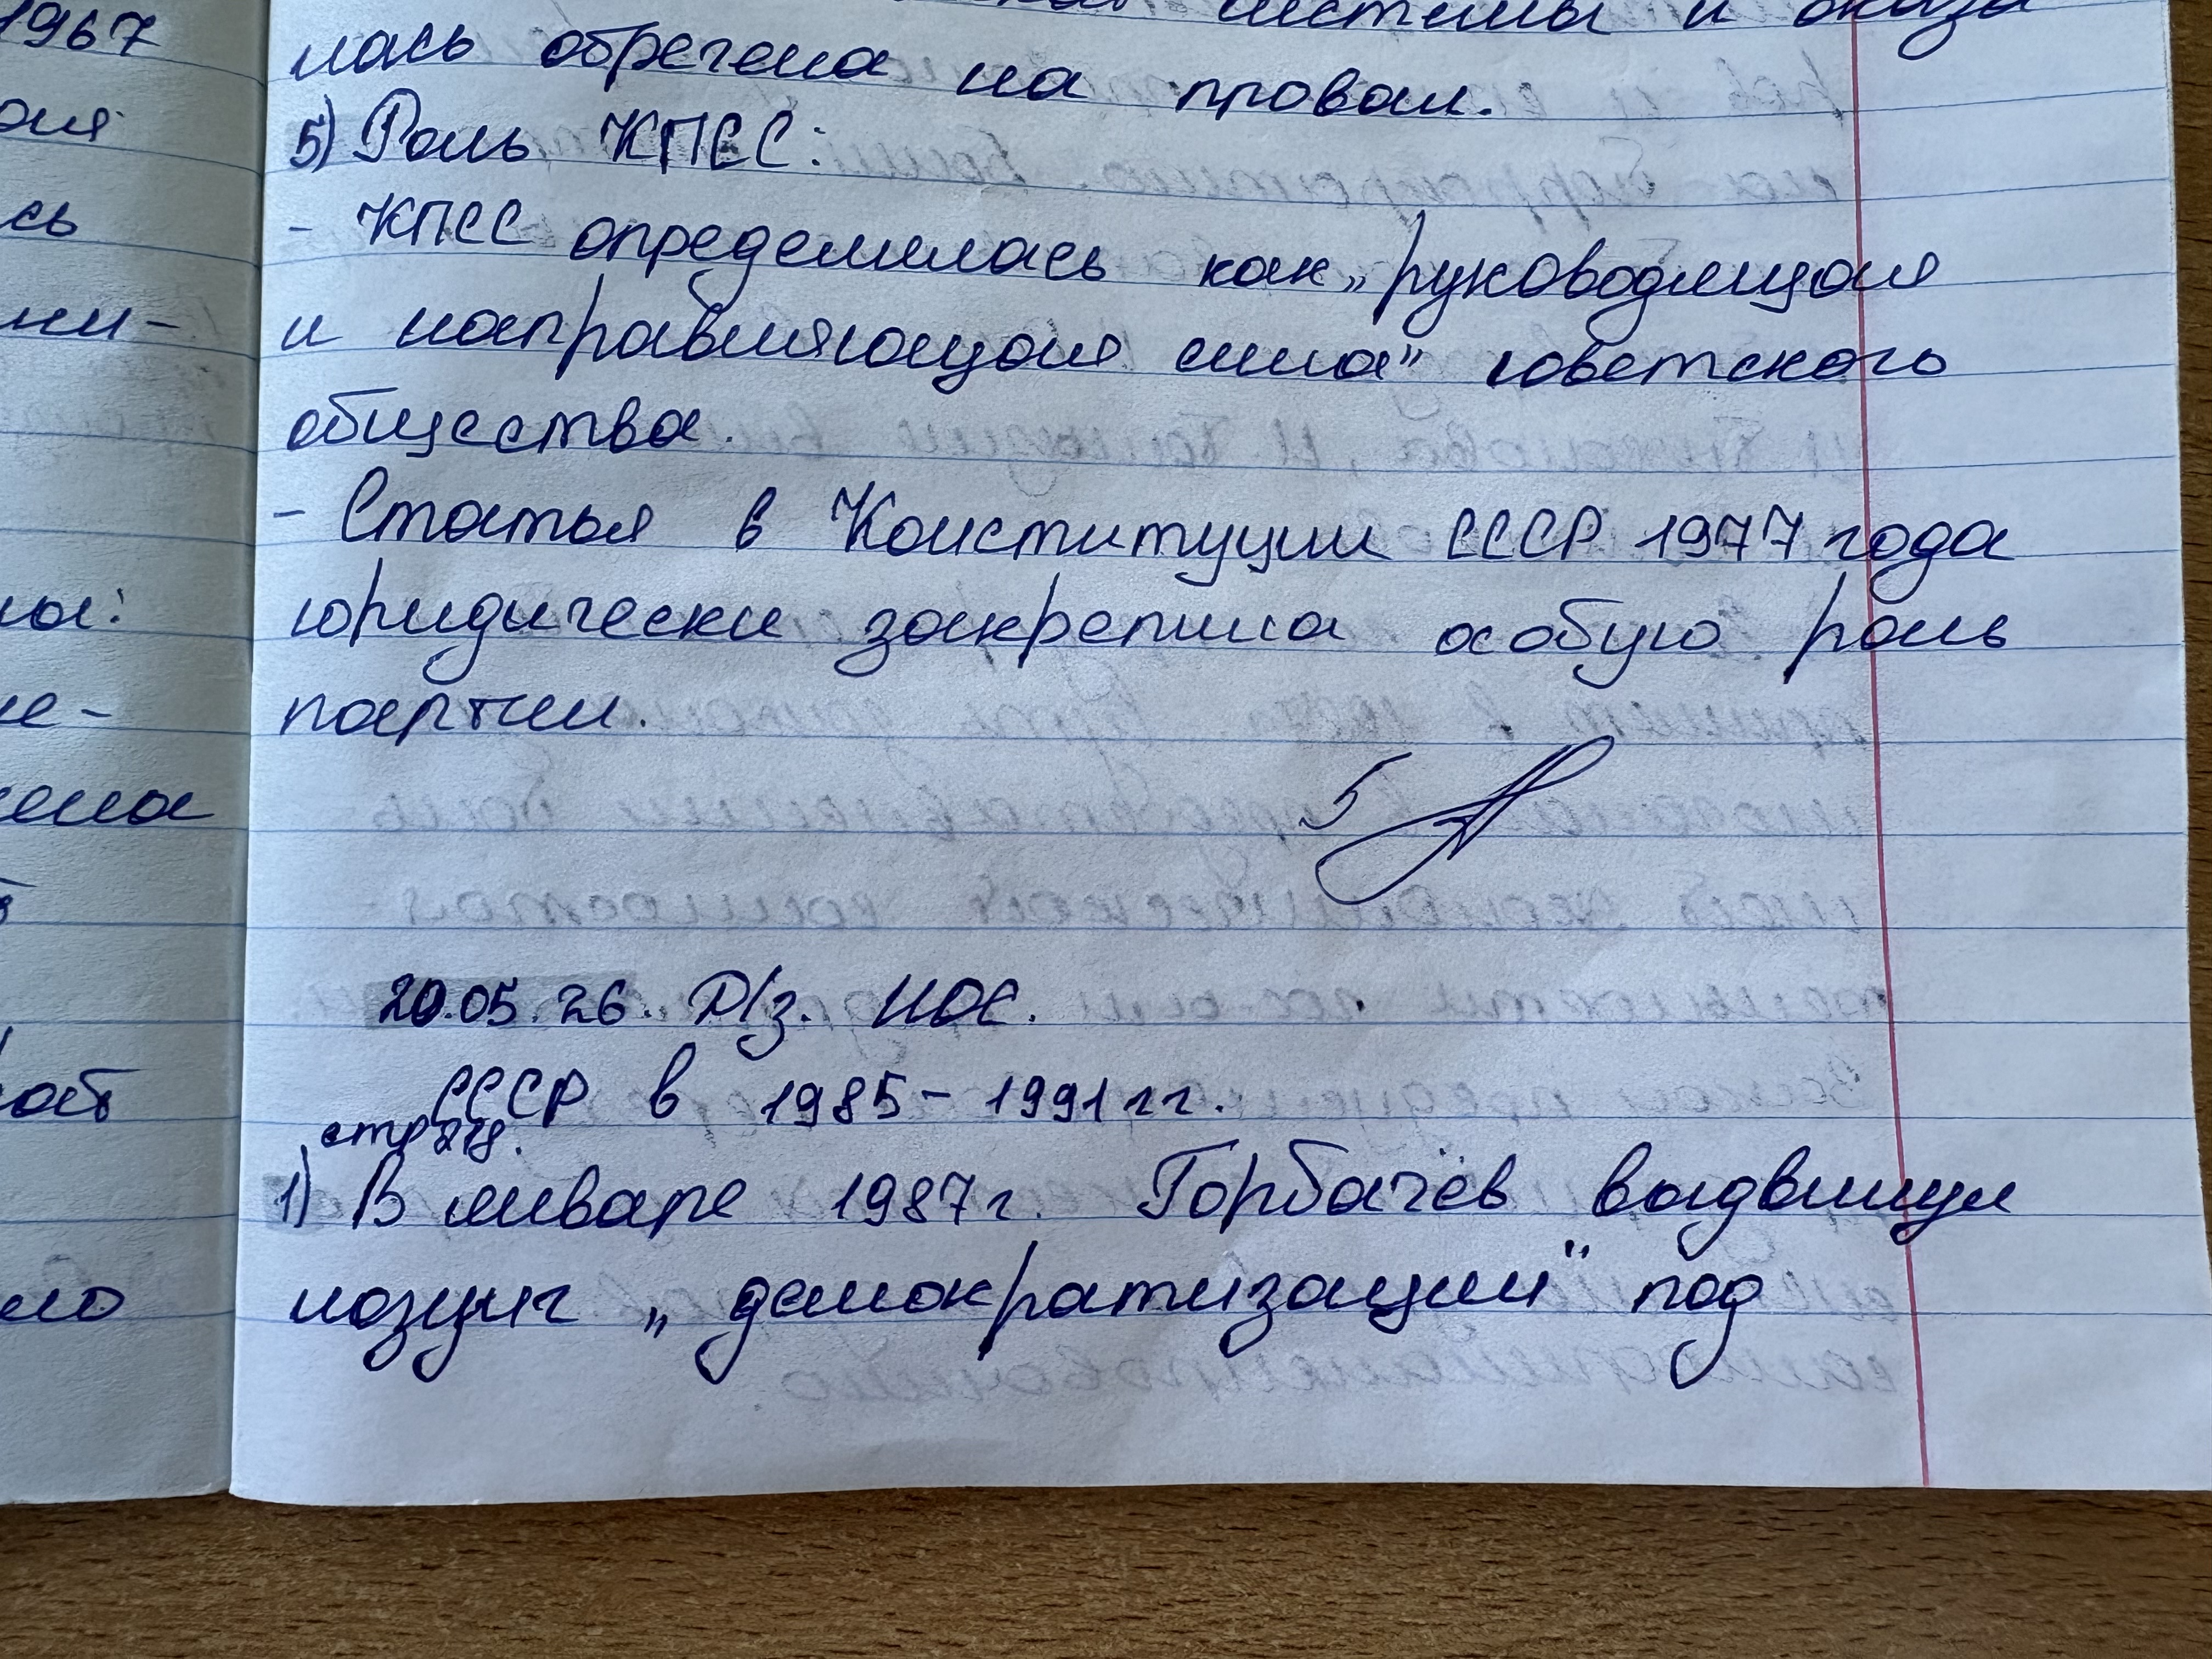 1967
сь
ни-
системы и оказа
лась обречена на провал.
5) Роль КПСС:
- КПСС определилась как „руководящая
и направляющая сила" советского
общества.
- Статья в Конституции СССР 1977 года
юридически закрепила особую роль
партии.
5
20.05.26. Д/з. ИОС.
СССР в 1985-1991 гг.
стр 218.
1) В январе 1987г. Горбачёв выдвинул
лозунг „демократизации" под